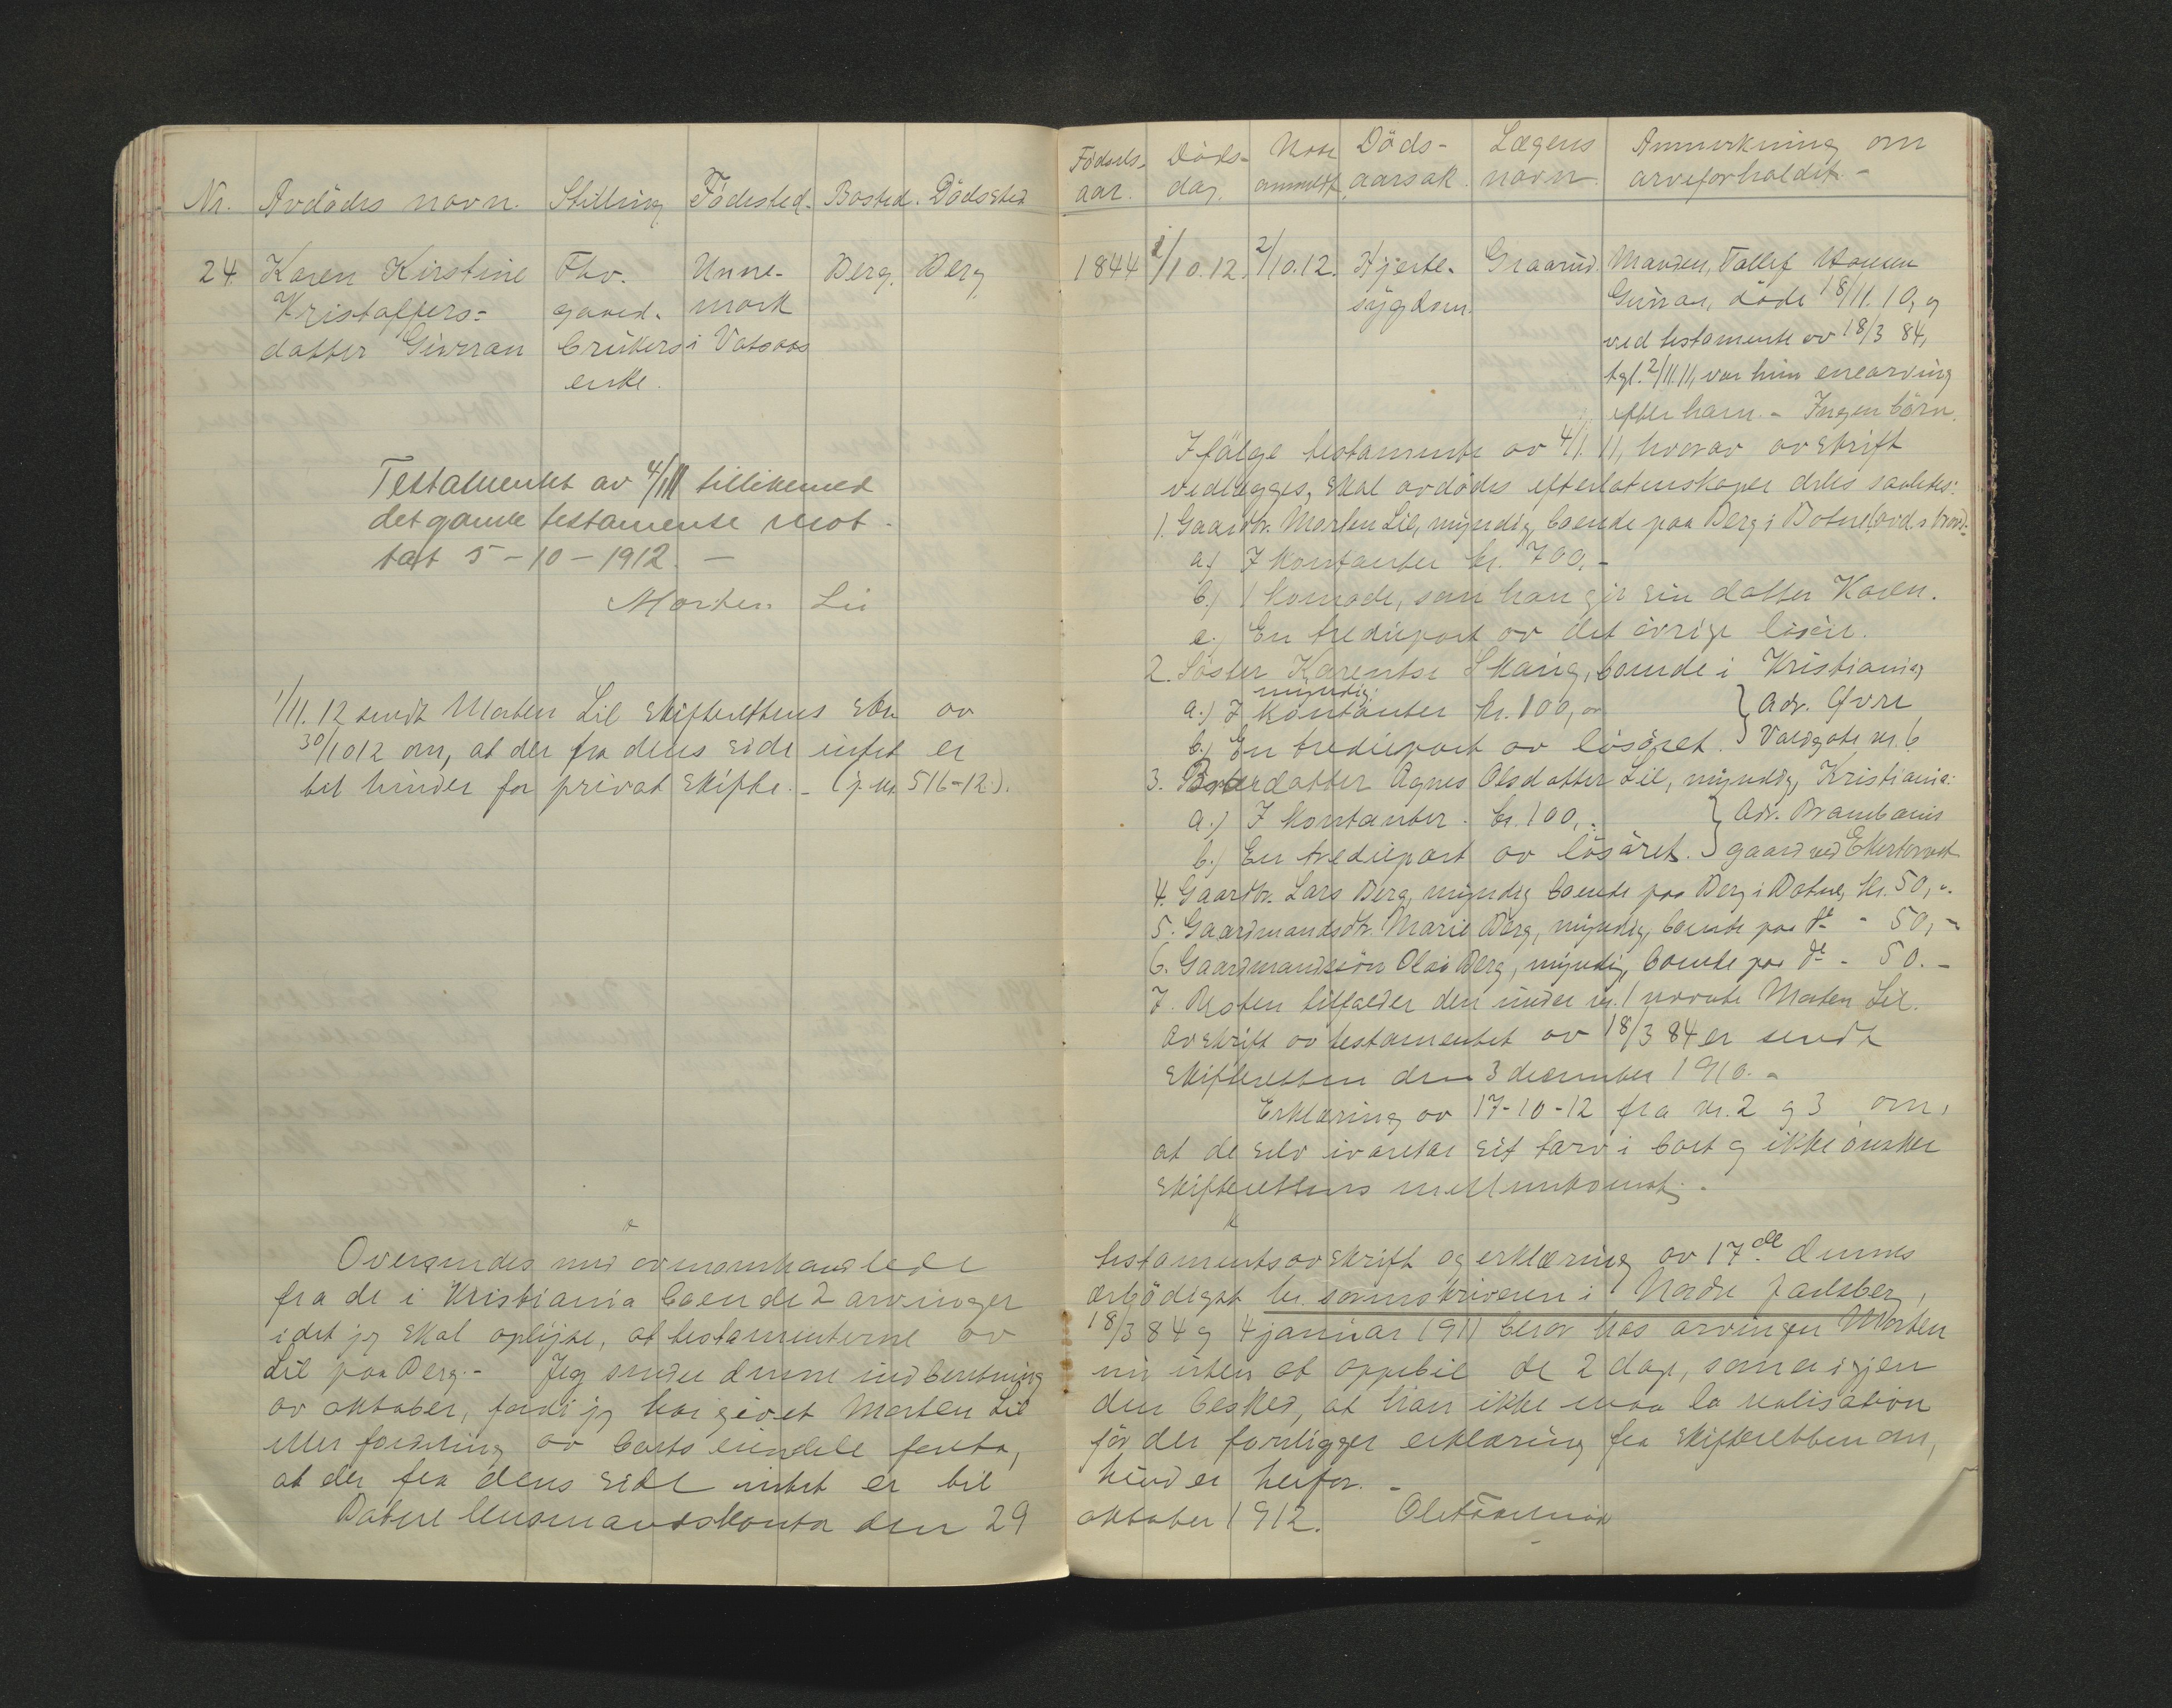 Nr. Avdødes navn. Stilling Fødested. Bosted. Dødssted
24 Karen Kirstine Fhv. Unne- Berg. Berg
Kristoffers- gaard- mork
datter brukers i Vataas
enke.
Testamentet av 4/1 11 tillikemed
det gamle testamente mot-
tat 5-10-1912. -
Morten Lie
1/11.12 sendt Morten Lie skifterettens skr. av
30/10 12 om, at der fra dens side intet er
til hinder for privat skifte. - (j. nr. 516-12).
Oversendes med ovenomhandlede
fra de i Kristiania boende 2 arvinger
idet jeg skal oplyse, at testamenterne av
Lie paa Berg. - Jeg sender denne indberetning
av oktober, fordi jeg har givet Morten Lie
eller fordeling av boets eiendele foreta,
at der fra dens side intet er til
Botne lensmandskontor den 29
Fødsels- Døds- Naar Døds- Lægens Anmerkning om
aar. dag. anmeldt. aarsak. navn. arveforholdet. -
1844 1/10.12. 2/10.12. Hjerte- Graarud. Manden, Tollef Hansen
sygdom. døde 18/11.10, og
ved testamente av 18/3 84,
tgl. 2/11.11, var hun enearving
efter ham. - Ingen børn.
Ifølge testamente av 4/1. 11, hvorav avskrift
vedlægges, skal avdødes efterlatenskaper deles saaledes:
1. Gaardbr. Morten Lie, myndig, boende paa Berg i Botne
a.) I kontanter kr. 700,-
b.) 1 komode, som han gir sin datter Karen.
c.) En trediepart av det øvrige løsøre.
2. Søster Karentse Skaug, boende i Kristiania,
myndig:
a.) I kontanter kr. 100,00 } Adr. Øvre
b.) En trediepart av løsøret. } Voldgate nr. 6
3. Broderdatter Agnes Olsdatter Lie, myndig, Kristiania:
a.) I kontanter kr. 100,- } Adr.
b.) En trediepart av løsøret. } gaard ved
4. Gaardbr. Lars Berg, myndig boende paa Berg i Botne, kr. 50,-.
5. Gaardmandsdtr. Marie Berg, myndig, boende paa do - 50,-
6. Gaardmandssøn Olav Berg, myndig, boende paa do - 50.-
7. Resten tilfalder den under nr. 1 nævnte Morten Lie.
Avskrift av testamentet av 18/3 84 er sendt
skifteretten den 3 december 1910. -
Erklæring av 17-10-12 fra nr. 2 og 3 om,
at de selv ivaretar sit tarv i boet og ikke ønsker
skifterettens mellemkomst. -
testamentsavskrift og erklæring av 17de dennes
ærbødigst hr. sorenskriveren i Nordre Jarlsberg,
18/3 84 og 4 januar 1911 beror hos arvingen Morten
nu uten at oppebie de 2 dage, som er igjen
den besked, at han ikke maa la realisation
før der foreligger erklæring fra skifteretten om,
hinder herfor. -
oktober 1912.